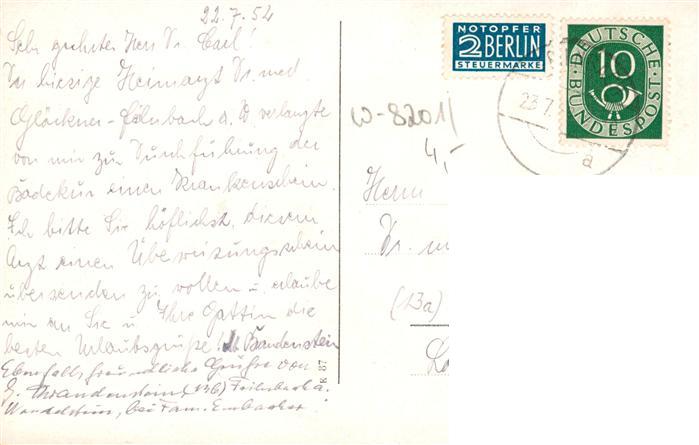 22.7.54
Sehr geehrter Herr Dr. Carl!
Der hiesige Heimarzt Dr. med
Glöckner - a. W verlangte
von mir zur Durchführung der
Badekur einen Krankenschein.
Ich bitte Sie höflichst, diesem
Arzt einen Überweisungsschein
übersenden zu wollen u. erlaube
mir an Sie u Ihre Gattin die
besten Urlaubsgrüße!
Ebenfalls freundliche Grüße von
(13b) a.
Wendelstein, bei Fam.
NOTOPFER
2 BERLIN
STEUERMARKE
DEUTSCHE
10
BUNDESPOST
23.7.
a
W-8201/
4,-
Herrn
Dr. m
(13a)
La
K 87